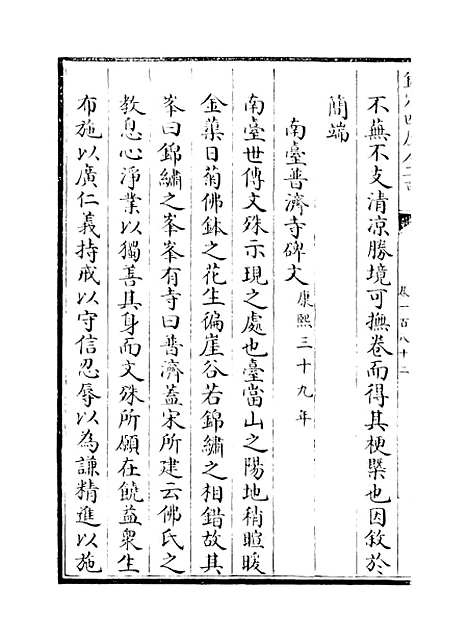 卷一百八十二
不蕪不支清凉勝境可撫卷而得其梗槩也因敘於
簡端
南臺普濟寺碑文 康熙三十九年
南臺世傳文殊示現之處也臺當山之陽地稍暄暖
金蕖日菊佛鉢之花生徧崖谷若錦繡之相錯故其
峯曰錦繡之峯峯有寺曰普濟葢宋所建云佛氏之
教息心淨業以獨善其身而文殊所願在饒益衆生
布施以廣仁義持戒以守信忍辱以為謙精進以施